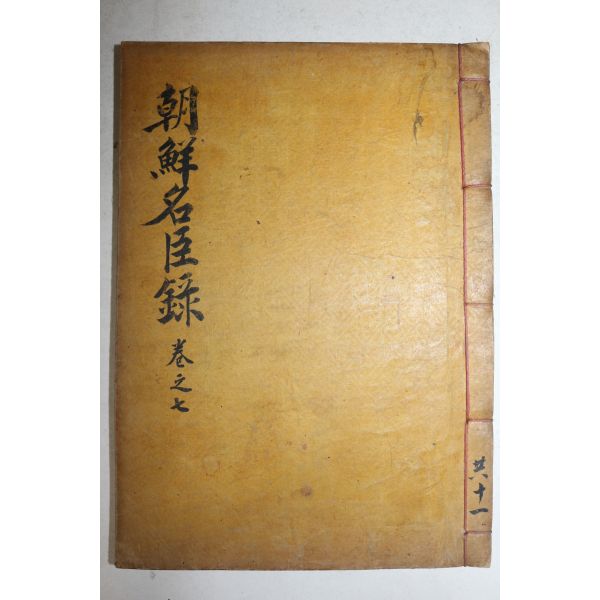 朝鮮名臣錄
卷之七
共十一